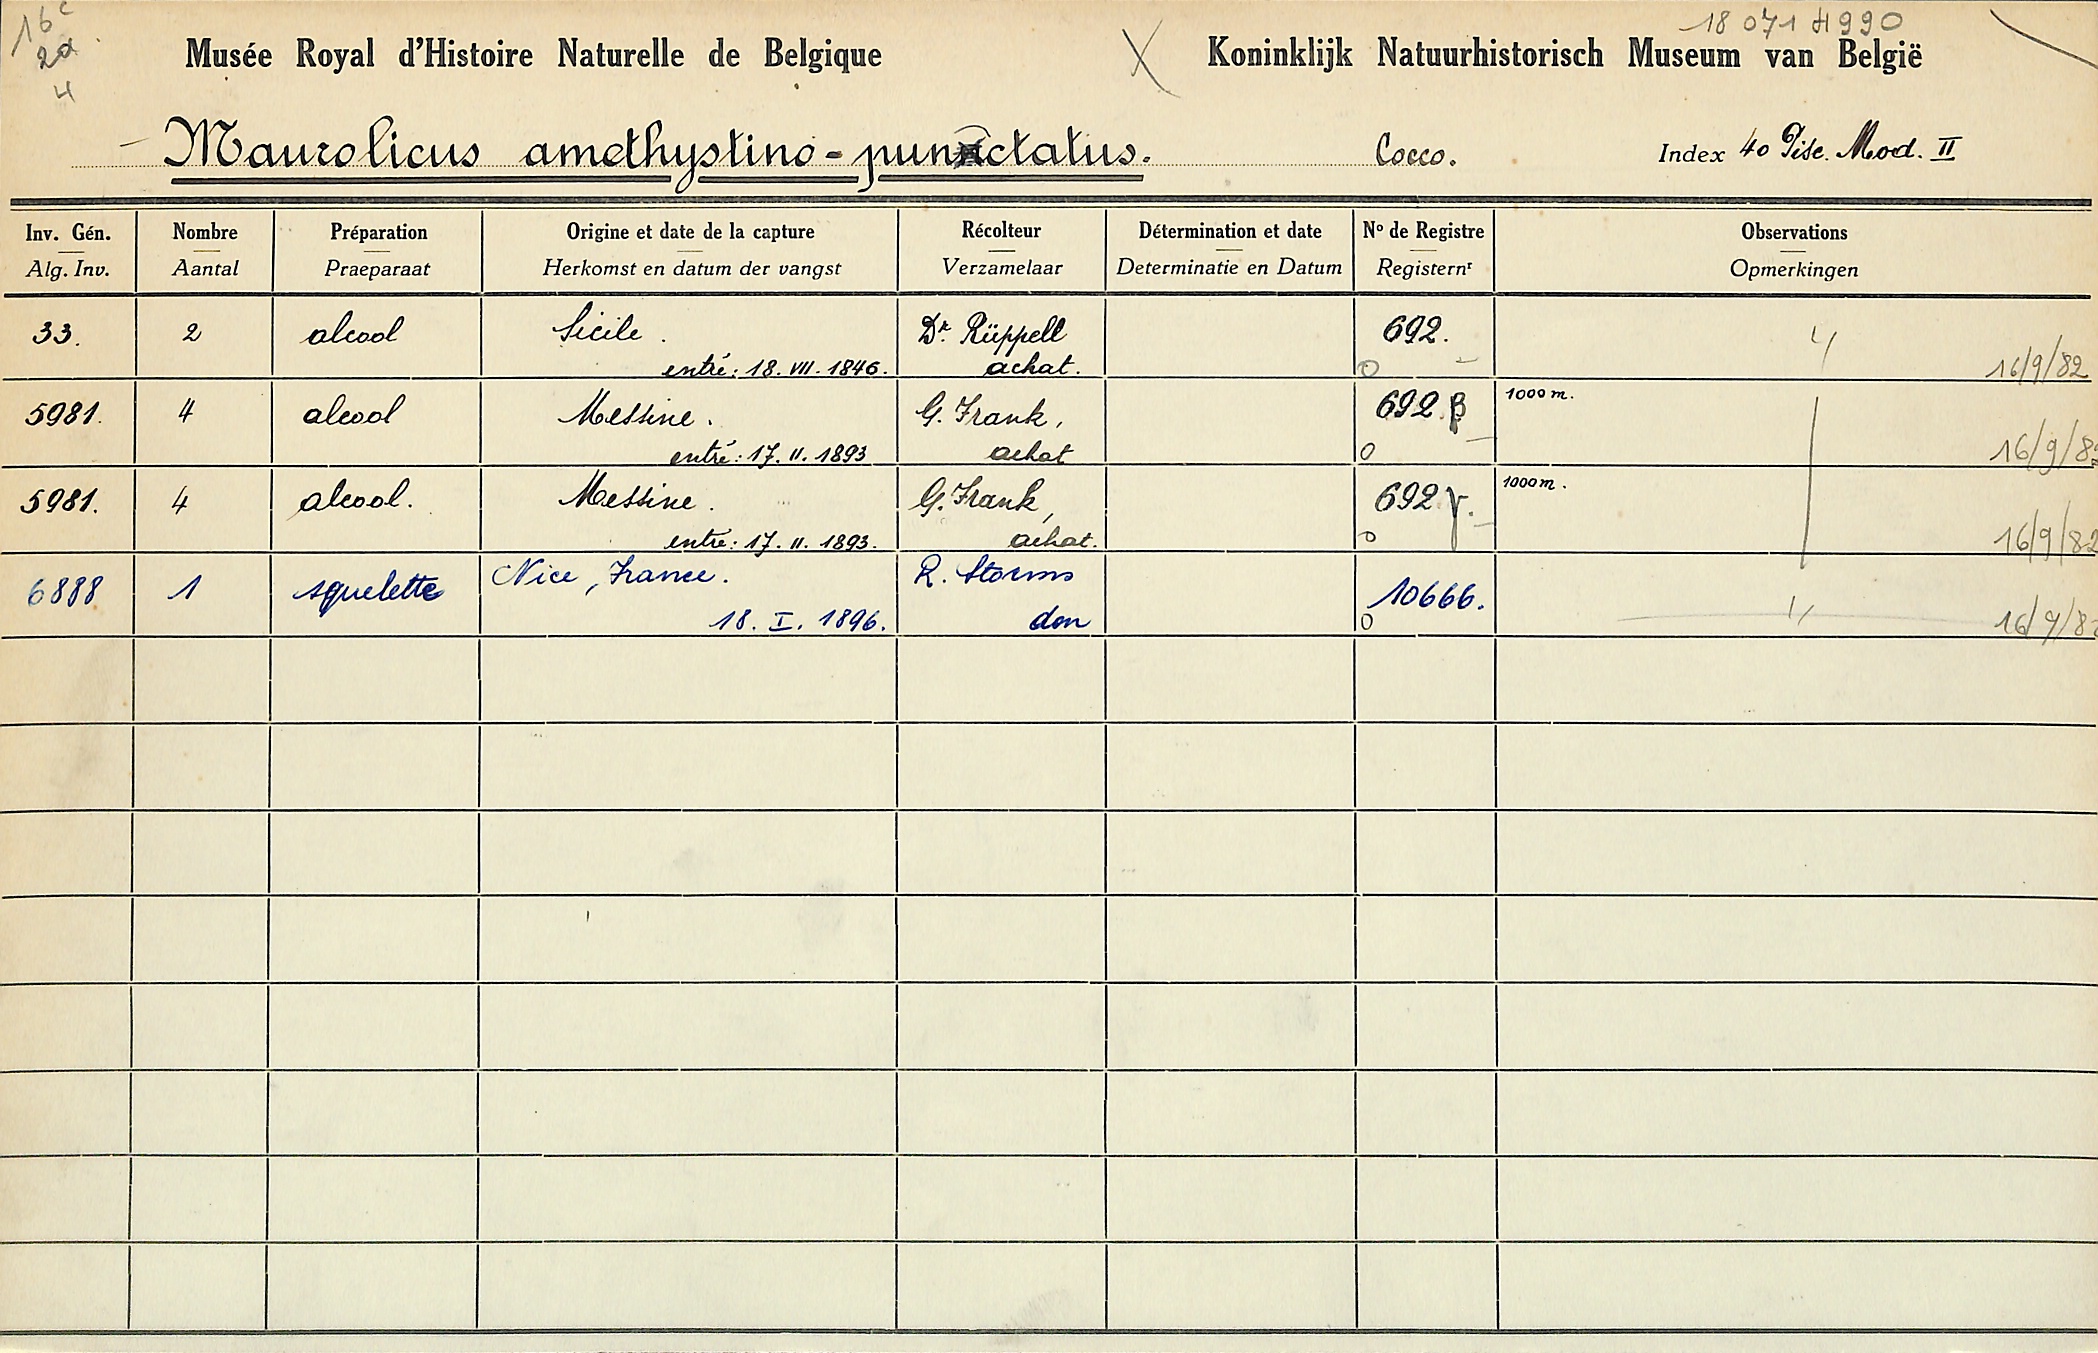 16c
2d
4
18 071 H990
Musée Royal d'Histoire Naturelle de Belgique X Koninklijk Natuurhistorisch Museum van België
Maurolicus amethystino-punctatus. Cocco. Index 40 Pisc. Mod. II
Inv. Gén. Nombre Préparation Origine et date de la capture Récolteur Détermination et date No de Registre Observations
Alg. Inv. Aantal Praeparaat Herkomst en datum der vangst Verzamelaar Determinatie en Datum Registernr Opmerkingen
33. 2 alcool Sicile. Dr. Rüppell 692.
entré: 18. VII. 1846. achat. 0 16/9/82
5981. 4 alcool Messine. G. Frank, 692 β 1000 m.
entré: 17. II. 1893 achat 0 16/9/82
5981. 4 alcool. Messine. G. Frank, 692 γ. 1000 m.
entré: 17. II. 1893. achat. 0 16/9/82
6888 1 squelette Nice, France. R. Storms 10666.
18. I. 1896. don 0 16/9/82